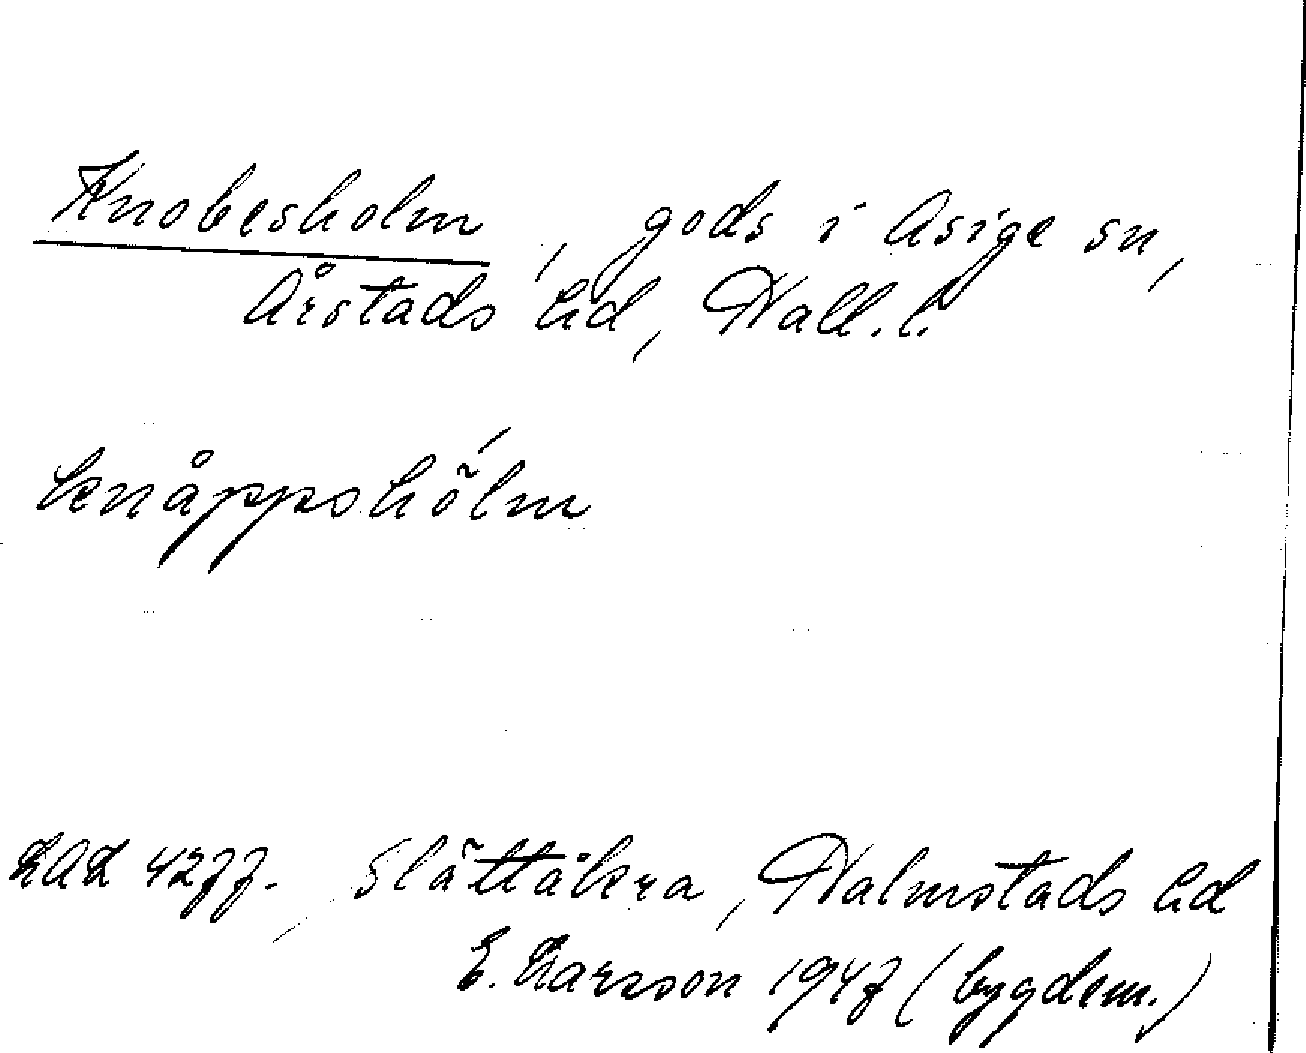 Knobesholm, gods i Asige sn,
Årstads hd, Hall. l.
knåppshólm
LAL 4277. Slättåkra, Halmstads hd
E. Larsson 1947 (bygdem.)